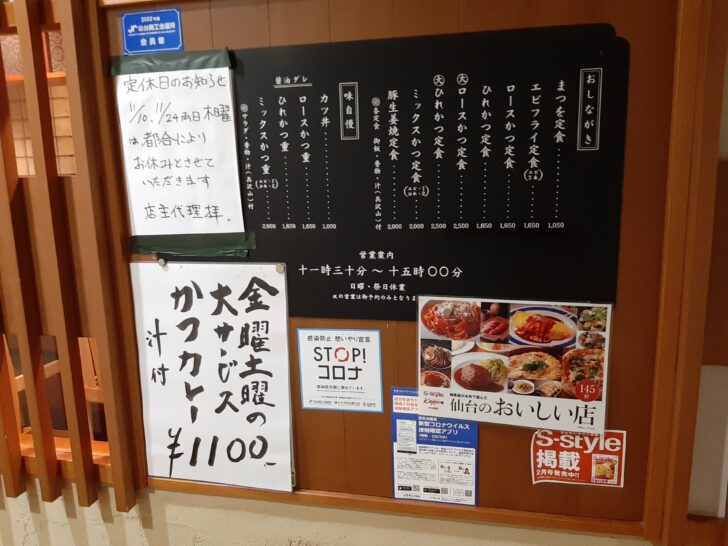 2022年度
仙台商工会議所
会員章
定休日のお知らせ
11/10、11/24両日木曜
は都合により
お休みとさせて
いただきます
店主代理拝.
おしながき
まつを定食 1,050
エビフライ定食 1,650
ロースかつ定食 1,650
ひれかつ定食 1,650
大 ロースかつ定食 2,500
大 ひれかつ定食 2,500
ミックスかつ定食 2,000
豚生姜焼定食 2,000
各定食 御飯・香物・汁(具沢山)付
味自慢
カツ丼 1,050
醤油ダレ
ロースかつ重 1,650
ひれかつ重 1,650
ミックスかつ重 2,000
サラダ・香物・汁(具沢山)付
営業案内
十一時三十分～十五時〇〇分
日曜・祭日休業
夜の営業は御予約のみとなります
金曜土曜の
大サービス
かつカレー
汁付
¥1100.-
感染防止 想いやり宣言
STOP!
コロナ
感染拡大防止に努めています。
新型コロナウイルス
接触確認アプリ
S-style
Kappo
仙台のおいしい店
145軒
S-style
掲載
2月号発売中!!